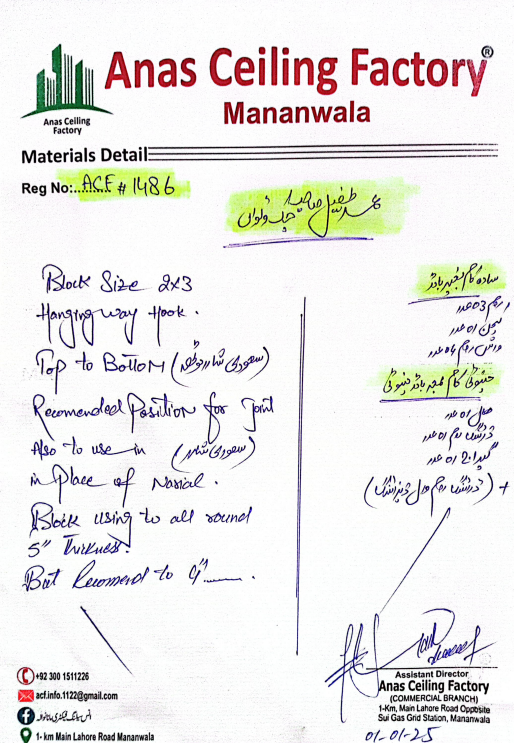 Anas Ceiling Factory®
Mananwala
Anas Ceiling
Factory
Materials Detail
Reg No:..ACF # 1486
محمد طفیل صاحب چک
Block Size 2x3
Hanging way Hook.
Top to Bottom (سعودی شارٹ
Recomended Position for Joint
Also to use in (سعودی
in Place of Narial.
Block using to all round
5" Thickness.
But Recomend to 4"
سادہ کام بغیر بارڈر
روم 03 عدد
کچن 01 عدد
واش روم 04 عدد
کام بمعہ بارڈر
01 عدد
ڈرائنگ روم 01 عدد
گیراج 01 عدد
+ (ڈرائنگ روم
+92 300 1511226
acf.info.1122@gmail.com
انس سیلنگ فیکٹری مانانوالہ
1- km Main Lahore Road Mananwala
Assistant Director
Anas Ceiling Factory
(COMMERCIAL BRANCH)
1-Km, Main Lahore Road Opposite
Sui Gas Grid Station, Mananwala
01-01-25